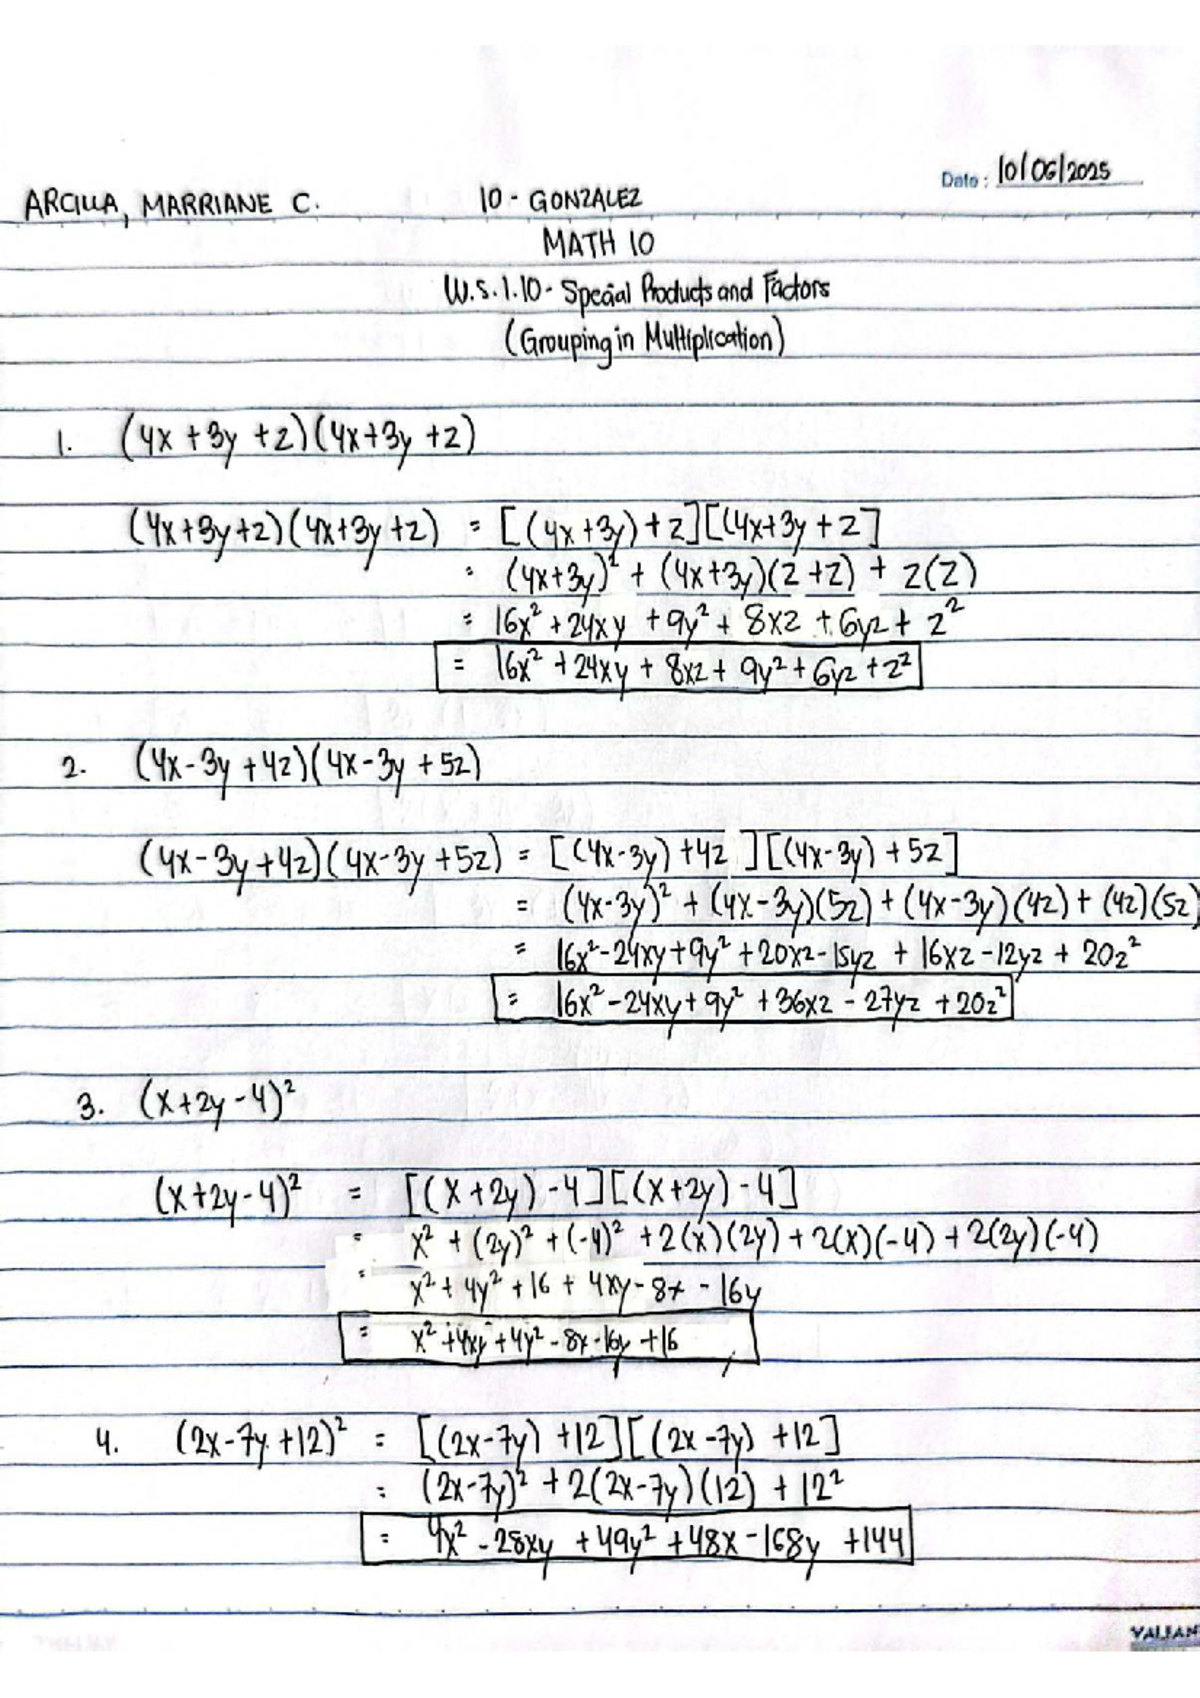 Date: 10/06/2025
ARCILLA, MARRIANE C. 10 - GONZALEZ
MATH 10
W.S. 1.10 - Special Products and Factors
(Grouping in Multiplication)
1. (4x + 3y + z)(4x + 3y + z)
(4x+3y+z)(4x+3y+z) = [(4x+3y)+z][(4x+3y+z]
= (4x+3y)² + (4x+3y)(z+z) + z(z)
= 16x² + 24xy + 9y² + 8xz + 6yz + z²
= 16x² + 24xy + 8xz + 9y² + 6yz + z²
2. (4x - 3y + 4z)(4x - 3y + 5z)
(4x-3y+4z)(4x-3y+5z) = [(4x-3y)+4z][(4x-3y)+5z]
= (4x-3y)² + (4x-3y)(5z) + (4x-3y)(4z) + (4z)(5z)
= 16x² - 24xy + 9y² + 20xz - 15yz + 16xz - 12yz + 20z²
= 16x² - 24xy + 9y² + 36xz - 27yz + 20z²
3. (x+2y-4)²
(x+2y-4)² = [(x+2y)-4][(x+2y)-4]
= x² + (2y)² + (-4)² + 2(x)(2y) + 2(x)(-4) + 2(2y)(-4)
= x² + 4y² + 16 + 4xy - 8x - 16y
= x² + 4xy + 4y² - 8x - 16y + 16
4. (2x-7y+12)² = [(2x-7y)+12][(2x-7y)+12]
= (2x-7y)² + 2(2x-7y)(12) + 12²
= 4x² - 28xy + 49y² + 48x - 168y + 144
VALIAN